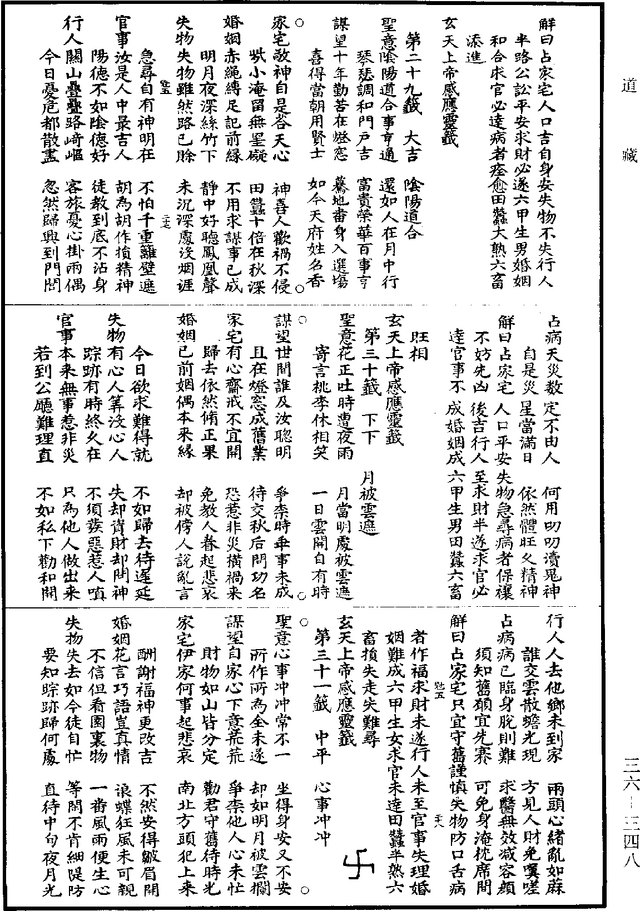 道藏
解曰占家宅人口吉自身安失物不失行人
半路公訟平安求財必遂六甲生男婚姻
和合求官必達病者痊愈田蠶大熟六畜
添進
玄天上帝感應靈籤
第二十九籤 大吉 陰陽道合
聖意陰陽道合事事通 還如人在月中行
琴瑟調和門戶吉 富貴榮華百事亨
謀望十年勤苦在燈窓 驀地番身入選場
喜得當朝用賢士 如今天府姓名香
家宅敬神自是荅天心 神喜人歡禍不侵
些小淹留無罣礙 田蠶十倍在秋深
婚姻赤繩縛足記前緣 不用求謀事已成
明月夜深絲竹下 靜中好聽鳳凰聲
失物失物雖然路已賖 未沉深處没烟涯
急尋自有神明在 不怕千重籬壁遮
二七
官事汝是人中最吉人 胡為胡作損精神
陽德不如陰德好 徒教到底不沾身
行人關山疊疊路崎嶇 客旅憂心掛兩偶
今日憂危都散盡 忽然歸興到門閭
占病天災數定不由人 何用叨叨瀆晃神
自是災星當滿日 依然體旺久精神
解曰占家宅人口平安失物急尋病者保禳
不妨先凶後吉行人至求財半遂求官必
達官事不成婚姻成六甲生男田蠶六畜
旺相
玄天上帝感應靈籤
第三十籤 下下 月被雲遮
聖意花正吐時曹夜雨 月當明處被雲遮
寄言桃李休相笑 一日雲開自有時
謀望世間誰及汝聰明 爭柰時乖事未成
且在燈窓成舊業 待交秋后問功名
家宅有心齋戒不宜開 恐惹非災橫禍来
歸去依然脩正果 免教人眷起悲哀
婚姻已前姻偶本来緣 却被傍人說亂言
今日欲求難得就 不如歸去待遲延
失物有心人筭没心人 失却資財却問神
踪跡有時終久在 不須羨惡惹人嗔
官事本来無事惹非災 只為他人做出来
若到公廳難理直 不如私下勸和開
行人人去他鄉未到家 兩頭心緒亂如蔴
誰交雲散蟾光現 方見人財免嘆嗟
占病病已臨身脫則難 求醫無效減容顏
須知舊願宜先賽 可免身淹枕席間
解曰占家宅只宜守舊謹慎失物防口舌病
二八
者作福求財未遂行人未至官事失理婚
姻難成六甲生女求官未達田蠶半熟六
畜損失走失難尋
玄天上帝感應靈籤
第三十一籤 中平 心事冲冲
聖意心事冲冲常不一 坐得身安又不安
所作所為全未遂 却如明月被雲攔
謀望自家心下意荒荒 爭柰他人心未忙
財物如山皆分定 勸君守舊待時光
家宅伊家何事起悲哀 南北方頭犯上来
酬謝福神更改吉 不然安得皺眉開
婚姻花言巧語豈真情 浪蝶狂風未可親
不信但看園裏物 一番風雨便生心
失物失去如今徒自忙 等閑不肯細隄防
要知踪跡歸何處 直待中旬夜月光
卐
三六—三四八